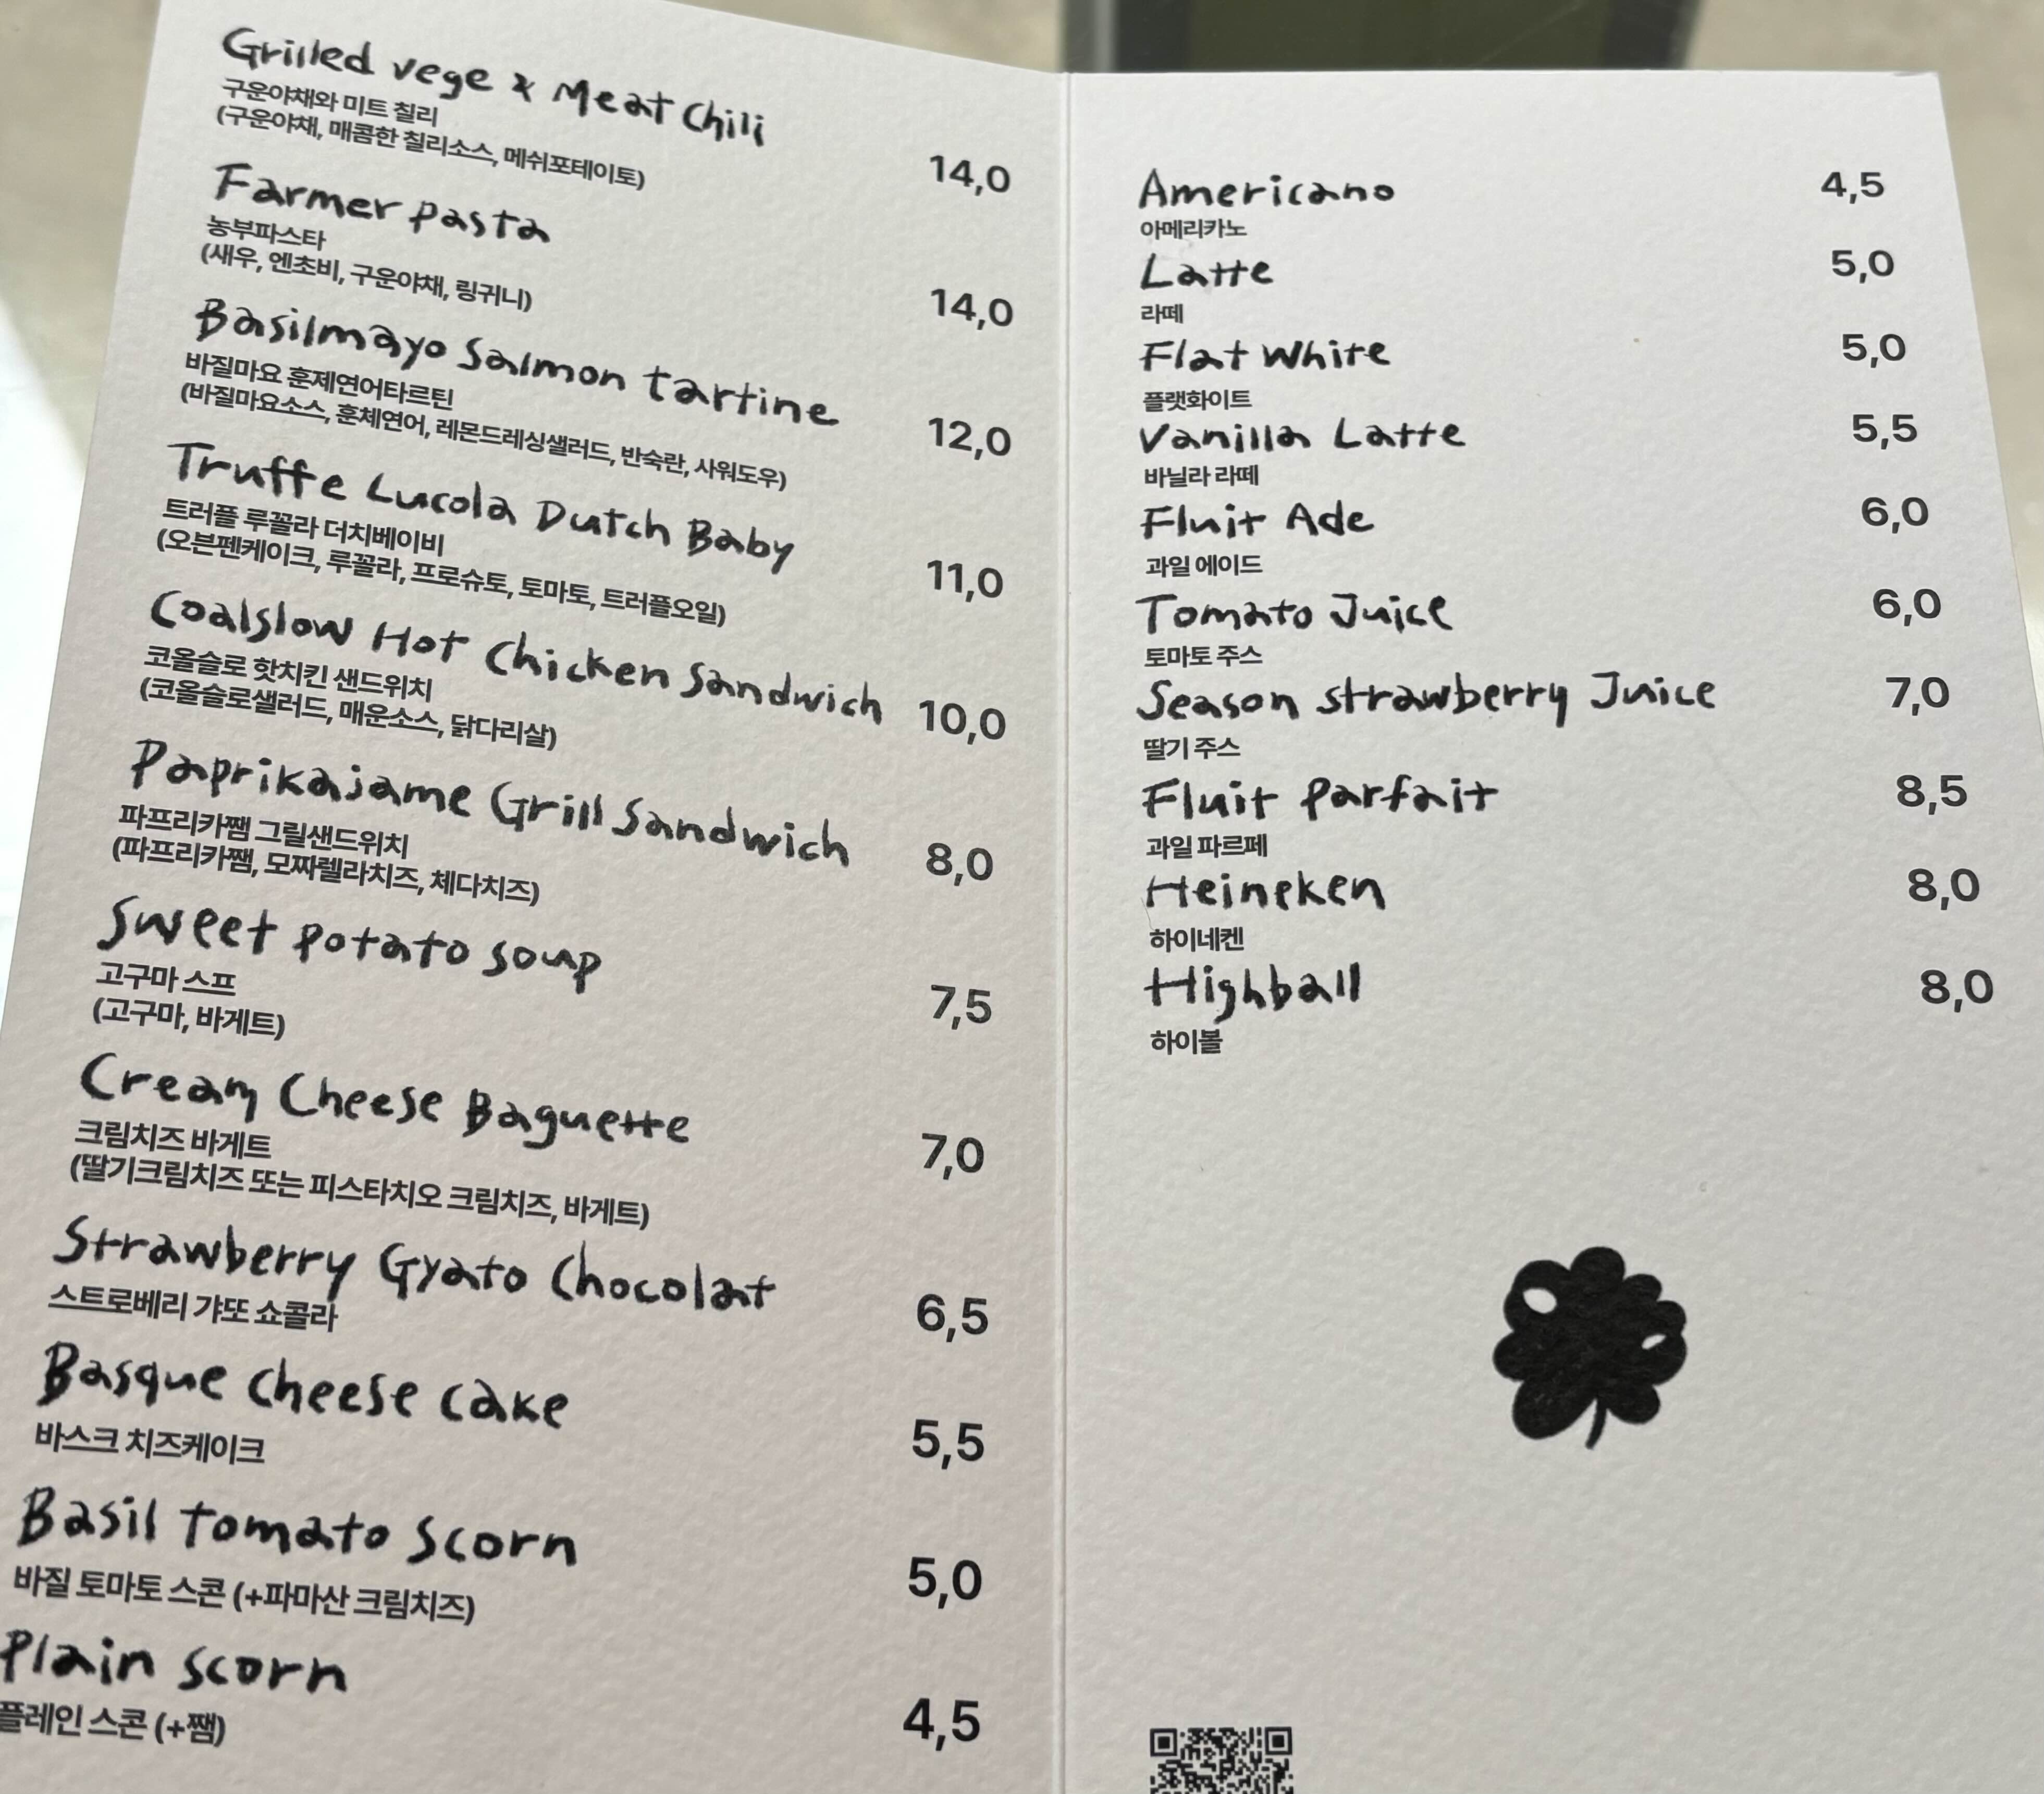 Grilled vege & Meat Chili
구운야채와 미트 칠리
(구운야채, 매콤한 칠리소스, 메쉬포테이토)
14,0
Farmer pasta
농부파스타
(새우, 엔초비, 구운야채, 링귀니)
14,0
Basilmayo Salmon tartine
바질마요 훈제연어타르틴
(바질마요소스, 훈체연어, 레몬드레싱샐러드, 반숙란, 사워도우)
12,0
Truffe Lucola Dutch Baby
트러플 루꼴라 더치베이비
(오븐펜케이크, 루꼴라, 프로슈토, 토마토, 트러플오일)
11,0
Coalslow Hot Chicken Sandwich
코올슬로 핫치킨 샌드위치
(코올슬로샐러드, 매운소스, 닭다리살)
10,0
Paprikajame Grill Sandwich
파프리카쨈 그릴샌드위치
(파프리카쨈, 모짜렐라치즈, 체다치즈)
8,0
Sweet potato soup
고구마 스프
(고구마, 바게트)
7,5
Cream Cheese Baguette
크림치즈 바게트
(딸기크림치즈 또는 피스타치오 크림치즈, 바게트)
7,0
Strawberry Gyato Chocolat
스트로베리 갸또 쇼콜라
6,5
Basque cheese cake
바스크 치즈케이크
5,5
Basil tomato scorn
바질 토마토 스콘 (+파마산 크림치즈)
5,0
Plain scorn
플레인 스콘 (+쨈)
4,5
Americano 4,5
아메리카노
Latte 5,0
라떼
Flat White 5,0
플랫화이트
Vanilla Latte 5,5
바닐라 라떼
Fluit Ade 6,0
과일 에이드
Tomato Juice 6,0
토마토 주스
Season strawberry Juice 7,0
딸기 주스
Fluit parfait 8,5
과일 파르페
Heineken 8,0
하이네켄
Highball 8,0
하이볼